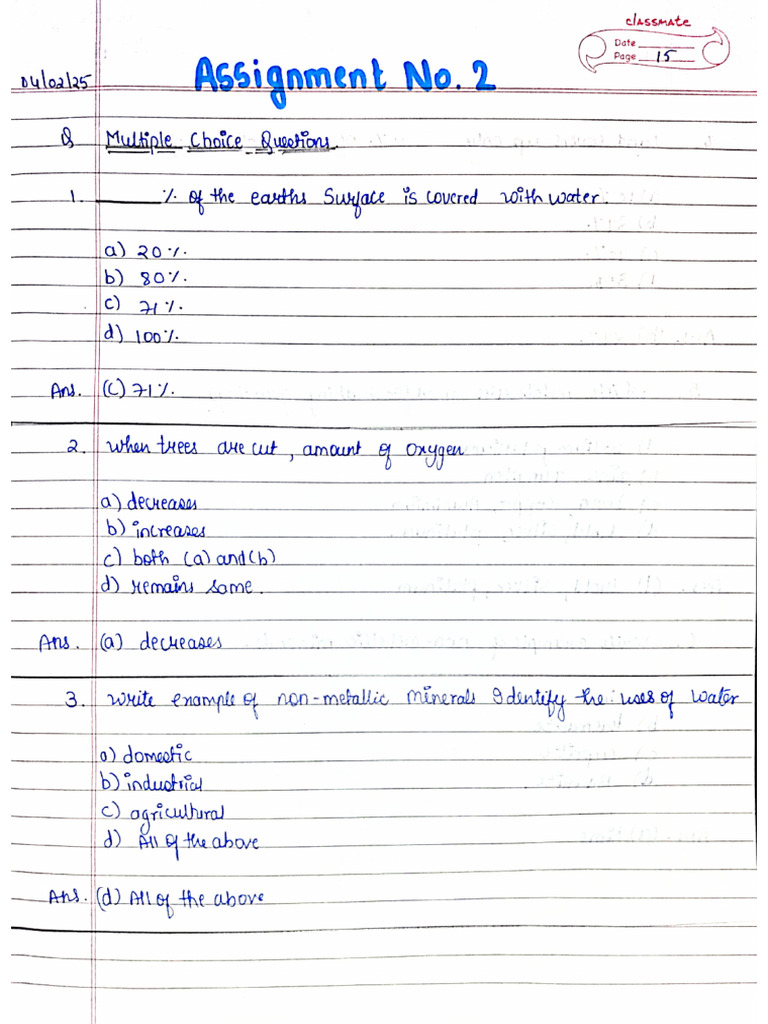 classmate
Date
Page 15
04/02/25
Assignment No. 2
Q Multiple Choice Questions.
1. ______ % of the earths Surface is covered with water.
a) 20%.
b) 80%.
c) 71%.
d) 100%.
Ans. (C) 71%.
2. When trees are cut, amount of oxygen
a) decreases
b) increases
c) both (a) and (b)
d) remains same.
Ans. (a) decreases
3. Write example of non-metallic minerals Identify the uses of water
a) domestic
b) industrial
c) agricultural
d) All of the above
Ans. (d) All of the above